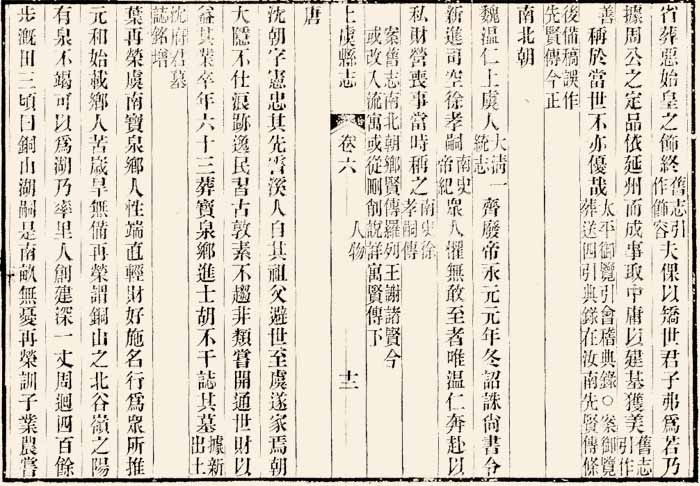 省葬惡始皇之飾終舊志引作飾容夫倮以矯世君子弗爲若乃
據周公之定品依延州而成事取中庸以建基獲美舊志引作
善稱於當世不亦優哉太平御覽引會稽典錄○案御覽葬送四引典錄在汝南先賢傳條
後備稿誤作先賢傳今正
南北朝
魏温仁上虞人大清一統志齊廢帝永元元年冬詔誅尚書令
新進司空徐孝嗣南史帝紀衆人懼無敢至者唯温仁奔赴以
私財營喪事當時稱之南史徐孝嗣傳
案舊志南北朝鄉賢傳羅列王謝諸賢今
或改入流寓或從刪削說詳寓賢傳下
上虞縣志
卷六
人物
十二
唐
沈朝字憲忠其先雲溪人自其祖父避世至虞遂家焉朝
大隱不仕痕跡逸民習古敦素不趨非類嘗開通世財以
益其業卒年六十三葬寶泉鄉進士胡不干誌其墓據新出土
沈府君墓誌銘增
葉再榮虞南寶泉鄉人性端直輕財好施名行爲眾所推
元和始載鄉人苦歲旱無備再榮謂銅山之北谷嶺之陽
有泉不竭可以爲湖乃率里人創建深一丈周迴四百餘
步溉田三頃曰銅山湖嗣是南畝無憂再榮訓子業農嘗